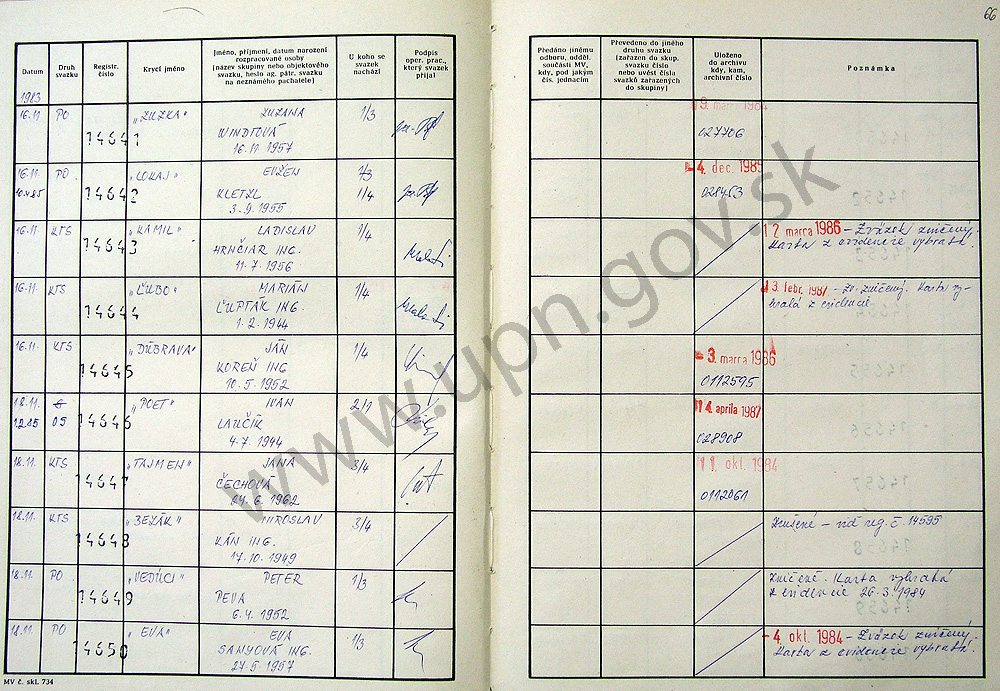 66
Datum
Druh svazku
Registr. číslo
Krycí jméno
Jméno, příjmení, datum narození
rozpracované osoby
(název skupiny nebo objektového
svazku, heslo ag. pátr. svazku
na neznámého pachatele)
U koho se
svazek
nachází
Podpis
oper. prac.,
který svazek
přijal
Předáno jinému
odboru, odděl.
součásti MV,
kdy, pod jakým
čís. jednacím
Převedeno do jiného
druhu svazku
(zařazen do skup.
svazku číslo
nebo uvést čísla
svazků zařazených
do skupiny)
Uloženo
do archivu
kdy, kam,
archivní číslo
Poznámka
1983
16.11 PO 14641 "ZUZKA" ZUZANA 1/3
WINDTOVÁ
16.11.1957
9. marca 1984
027706
16.11 PO 14642 "LOKAJ" EVŽEN 1/3
KLETZL 1/4
3.9.1955
4. dec. 1985
028453
16.11. KTS 14643 "KAMIL" LADISLAV 1/4
HRNČIAR ING.
11.7.1956
12 marca 1986 – Zväzok zničený.
Karta z evidence vybratá.
16.11. KTS 14644 "ĽUBO" MARIÁN 1/4
ĽUPTÁK ING.
1.2.1944
13. febr. 1987 – zv. zničený. Karta vy-
bratá z evidencie
16.11. KTS 14645 "DÚBRAVA" JÁN 1/4
KOREŇ ING
10.5.1952
3. marca 1986
0112595
18.11. 14646 "POET" IVAN 2/1
12.85 OS LAUČÍK
4.7.1944
14 apríla 1987
028908
18.11. KTS 14647 "TAJMEN" JANA 3/4
ČECHOVÁ
24.6.1962
11. okt. 1984
0112061
18.11. KTS 14648 "BEZÁK" MIROSLAV 3/4
KÁN ING.
17.10.1949
Zrušené – viď reg. č. 14595
18.11. PO 14649 "VEDÚCI" PETER 1/3
PEVA
6.4.1952
Zničené. Karta vybratá
z evidencie 26.3.1984
18.11. PO 14650 "EVA" EVA 1/3
SANYOVÁ ING.
27.5.1957
4. okt. 1984 – Zväzok zničený.
Karta z evidence vybratá.
MV č. skl. 734
www.upn.gov.sk